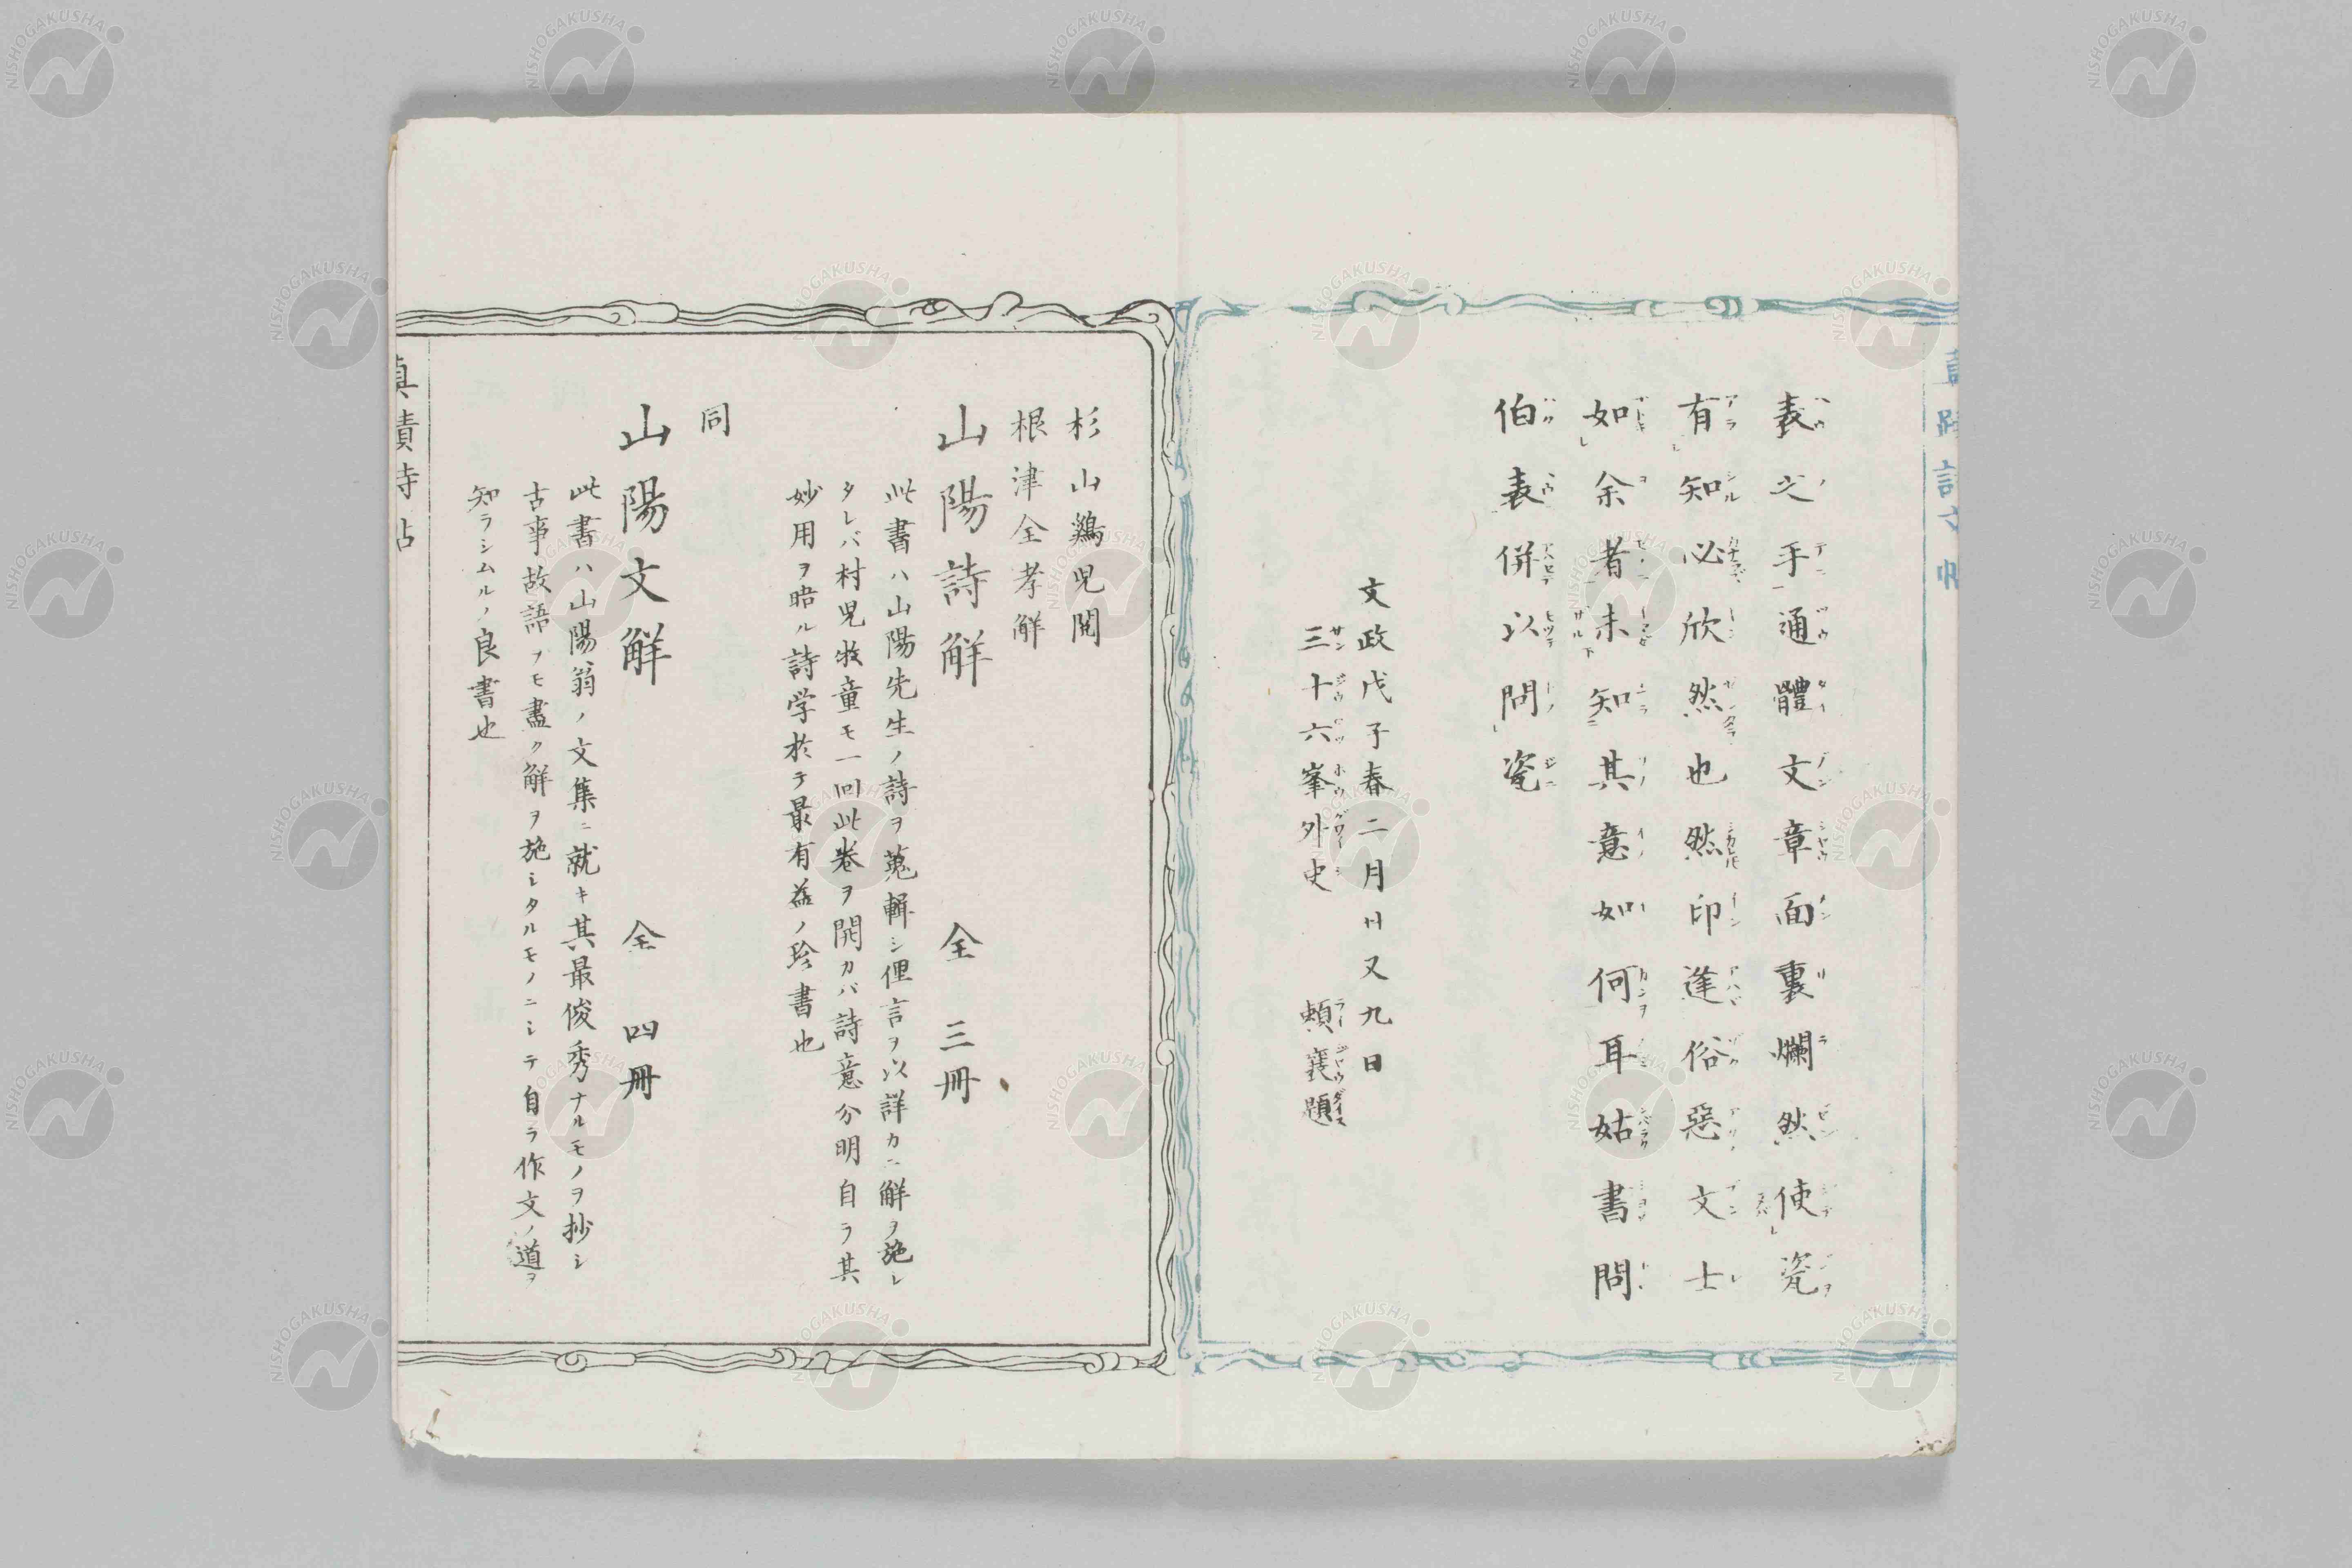 表之手通體文章面裏爛然使瓷
有知必欣然也然印逢俗惡文士
如余者未知其意如何耳姑書問
伯表併以問瓷
文政戊子春二月廿又九日
三十六峯外史 頼襄題
杉山鷄児閲
根津全孝解
山陽詩解 全三冊
此書ハ山陽先生ノ詩ヲ蒐輯シ俚言ヲ以詳カニ解ヲ施シ
タレバ村児牧童モ一回此巻ヲ開カバ詩意分明自ラ其
妙用ヲ晤ル詩学於テ最有益ノ珍書也
同
山陽文解 全四冊
此書ハ山陽翁ノ文集ニ就キ其最俊秀ナルモノヲ抄シ
古事故語ヲモ盡ク解ヲ施シタルモノニシテ自ラ作文ノ道ヲ
知ラシムルノ良書也
NISHOGAKUSHA